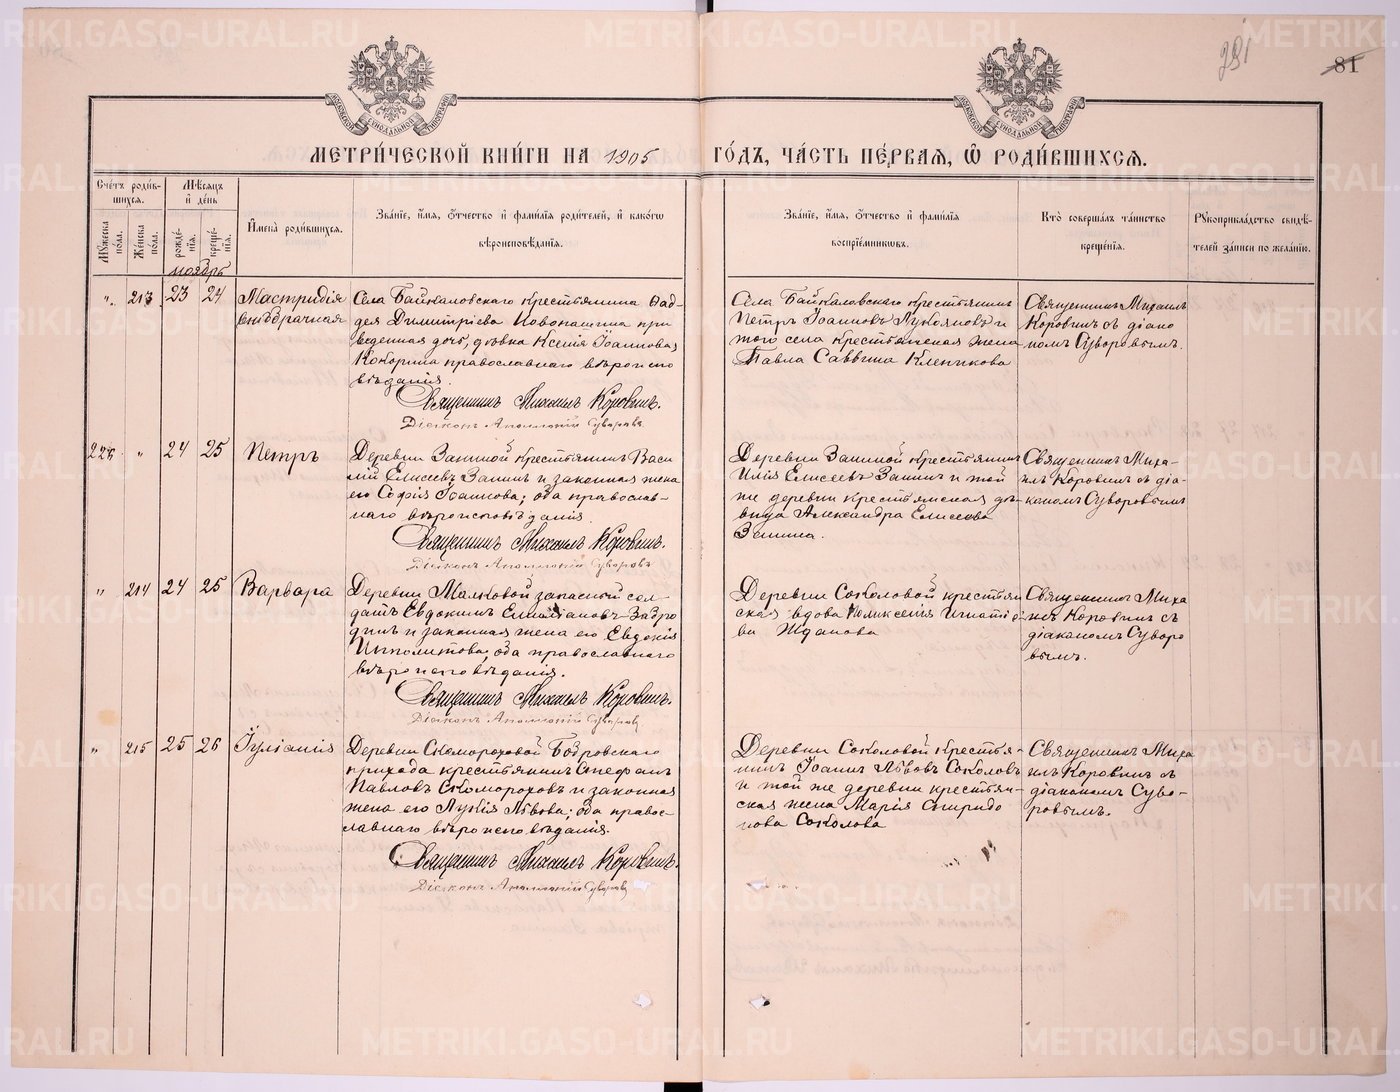 291
81
МОСКОВСКОЙ СѴНОДАЛЬНОЙ ТИПОГРАФІИ
МОСКОВСКОЙ СѴНОДАЛЬНОЙ ТИПОГРАФІИ
МЕТРИ́ЧЕСКОЙ КНИ́ГИ НА 1905 ГО́ДЪ, ЧА́СТЬ ПЕ́РВАЯ, Ѡ РОДИ́ВШИХСЯ.
Сче́тъ роди́в-
шихся.
Мꙋ́жеска по́ла.
Же́нска по́ла.
Мѣ́сяцъ
и҆ де́нь
рожде́-
нїя.
креще́-
нїя.
И҆мена̀ роди́вшихся.
Зва́нїе, и҆́мя, ѻ҆́тчество и҆ фами́лїѧ роди́телей, и҆ како́гѡ
вѣроисповѣ́данїѧ.
Зва́нїе, и҆́мя, ѻ҆́тчество и҆ фами́лїѧ
воспрїе́мникѡвъ.
Кто̀ соверша́лъ та́инство
креще́нїѧ.
Рꙋкоприкла́дство свидѣ́-
телей за́писи по жела́нїю.
ноябрь
„ 213 23 24
Мастридія
внѣбрачная
Села Байкаловскаго крестьянина Ѳад-
дея Димитріева Новопашина при
веденная дочь, дѣвка Ксенія Іоаннова
Кокорина православнаго вѣроиспо
вѣданія.
Священникъ Михаилъ Коровинъ.
Діаконъ Аполлоній Суворовъ
Села Байкаловскаго крестьянинъ
Петръ Іоанновъ Лукояновъ и
того села крестьянская жена
Павла Саввина Кленикова
Священникъ Михаилъ
Коровинъ съ діако
номъ Суворовымъ.
„ 24 25
Петръ
Деревни Заниной крестьянинъ Васи
лій Елисеевъ Занинъ и законная жена
его Софія Іоаннова; оба православ-
наго вѣроисповѣданія.
Священникъ Михаилъ Коровинъ.
Діаконъ Аполлоній Суворовъ
Деревни Заниной крестьянинъ
Илія Елисеевъ Занинъ и той
же деревни крестьянская дѣ-
вица Александра Елисеева
Занина.
Священникъ Миха-
илъ Коровинъ съ діа-
кономъ Суворовымъ
„ 214 24 25
Варвара
Деревни Малковой запасной сол-
датъ Евдокимъ Емиліановъ Забро
динъ и законная жена его Евдокія
Ипполитова; оба православнаго
вѣроисповѣданія.
Священникъ Михаилъ Коровинъ.
Діаконъ Аполлоній Суворовъ
Деревни Соколовой крестьян
ская вдова Поликсенія Игнатіе
ва Жданова
Священникъ Миха
илъ Коровинъ съ
діакономъ Суворо
вымъ.
„ 215 25 26
Іуліанія
Деревни Скомороховой Бобровскаго
прихода крестьянинъ Стефанъ
Павловъ Скомороховъ и законная
жена его Лукія Львова; оба право-
славнаго вѣроисповѣданія.
Священникъ Михаилъ Коровинъ.
Діаконъ Аполлоній Суворовъ
Деревни Соколовой крестья-
нинъ Іоаннъ Львовъ Соколовъ
и той же деревни крестьян-
ская жена Марія Спиридо
нова Соколова
Священникъ Миха
илъ Коровинъ съ
діакономъ Суво-
ровымъ.
METRIKI.GASO-URAL.RU